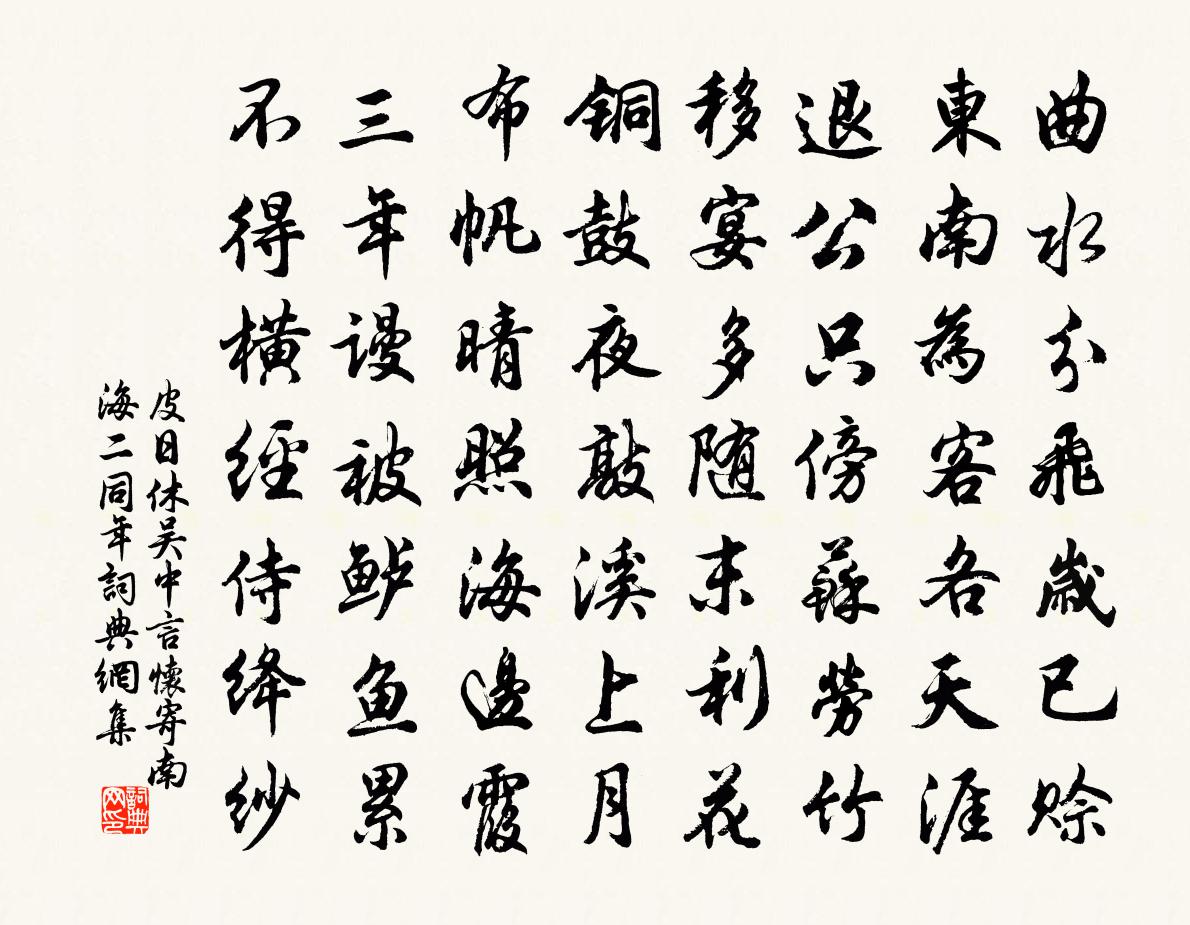 曲水分飛歲已賒
東南為客各天涯
退公只傍蘇勞竹
移宴多随末利花
銅鼓夜敲溪上月
布帆晴照海邊霞
三年謾被鲈鱼累
不得橫經侍绛纱
皮日休吴中言懷寄南
海二同年詞典網集
詞典
网印